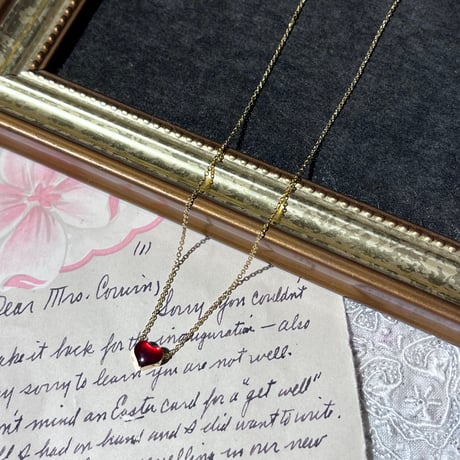 (1)
Dear Mrs. Corwin, Sorry you couldn't
make it back for the inauguration — also
sorry to learn you are not well.
mind an Easter card for a "get well"
I had on hand and I did want to write.
in our new